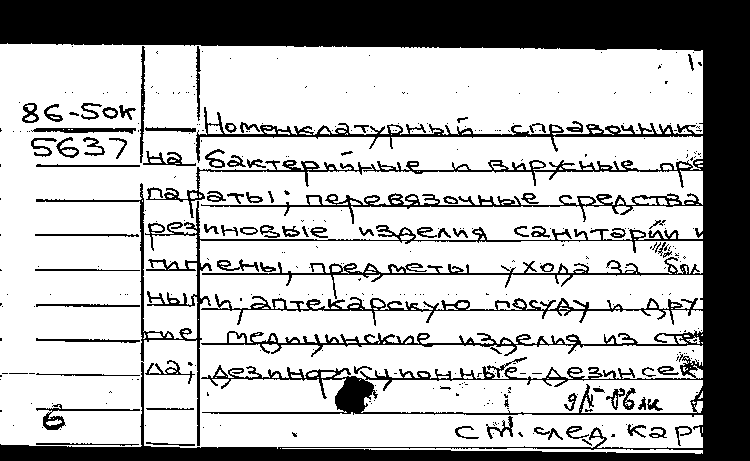 1.
86-50к
5637
Номенклатурный справочник
на бактерийные и вирусные пре
параты; перевязочные средства
резиновые изделия санитарии и
гигиены, предметы ухода за бол
ными; аптекарскую посуду и друг
гие медицинские изделия из стек
ла; дезинфикционные, дезинсек
6
см. след. карт